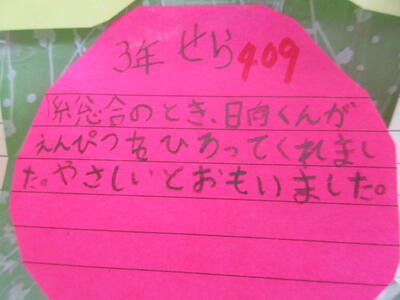 3年 せら 409
総合のとき、日向くんが
えんぴつをひろってくれまし
た。やさしいとおもいました。